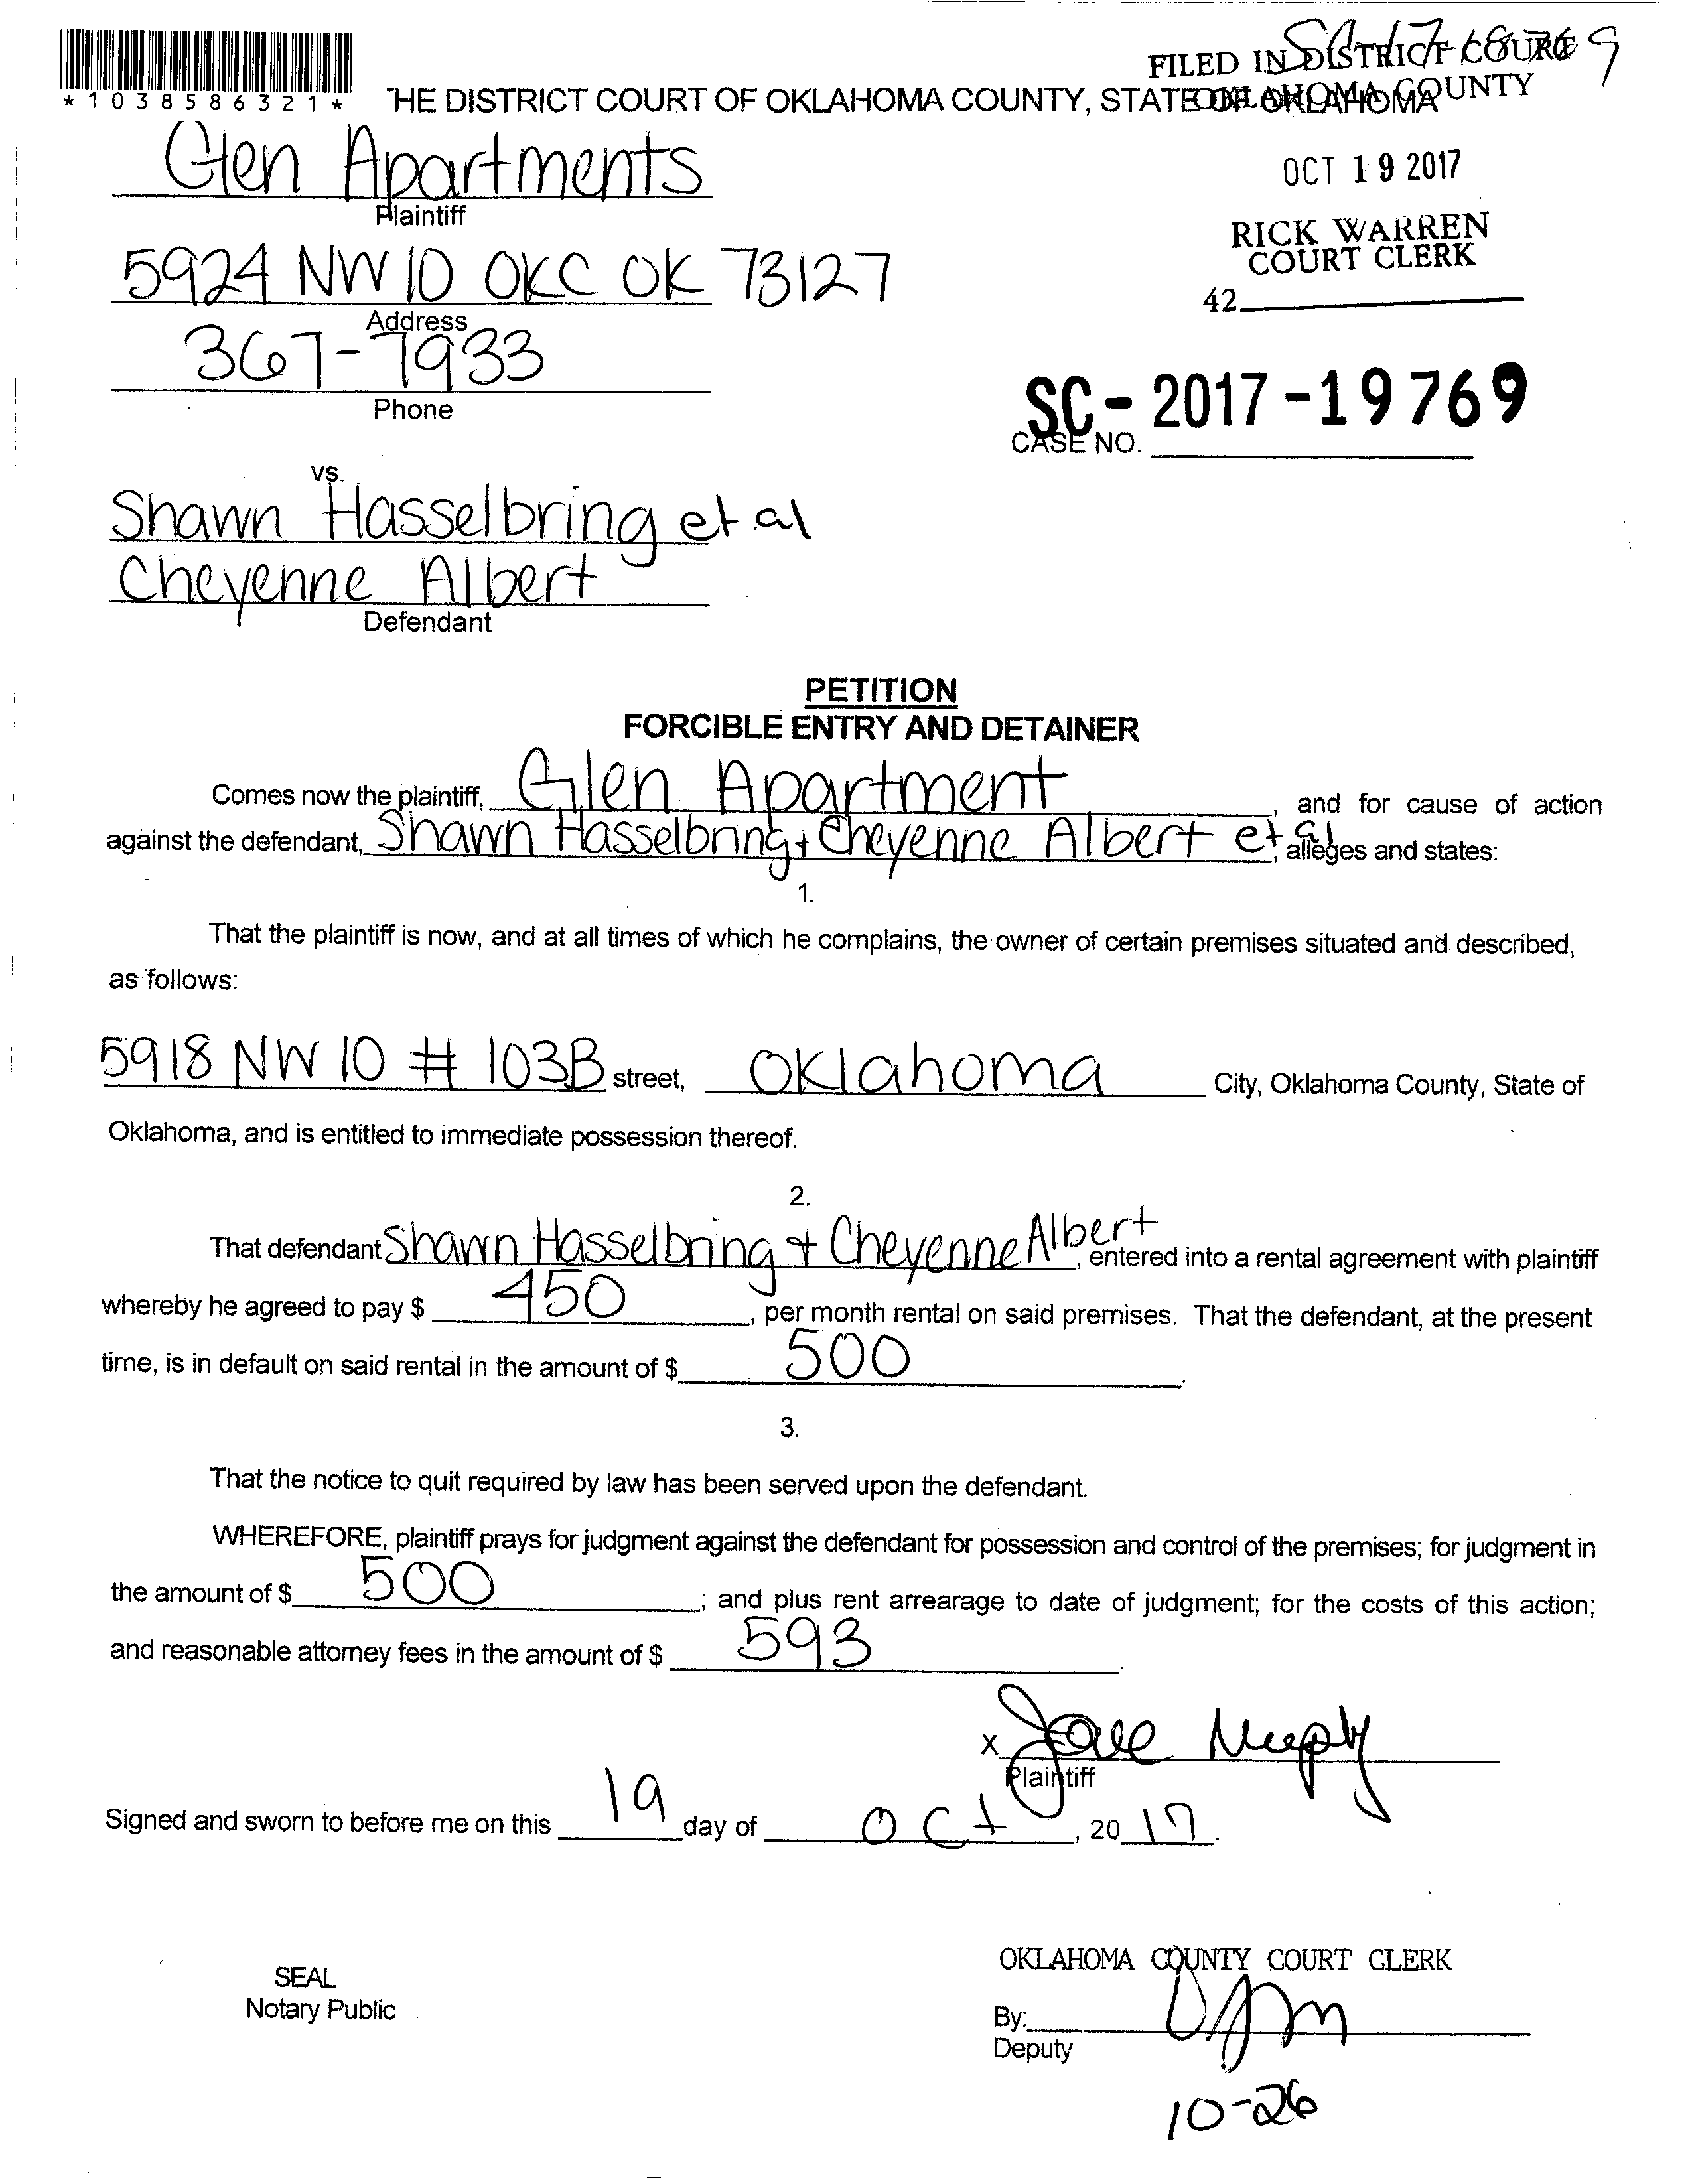 FILED IN DISTRICT COURT
OKLAHOMA COUNTY
*1038586321*
HE DISTRICT COURT OF OKLAHOMA COUNTY, STATE OF OKLAHOMA
Glen Apartments
Plaintiff
OCT 19 2017
RICK WARREN
COURT CLERK
42
5924 NW 10 OKC OK 73127
Address
367-7933
Phone
SC-2017-19769
CASE NO.
vs.
Shawn Hasselbring et al
Cheyenne Albert
Defendant
PETITION
FORCIBLE ENTRY AND DETAINER
Comes now the plaintiff, Glen Apartment, and for cause of action
against the defendant, Shawn Hasselbring + Cheyenne Albert et al, alleges and states:
1.
That the plaintiff is now, and at all times of which he complains, the owner of certain premises situated and described,
as follows:
5918 NW 10 # 103B street, Oklahoma City, Oklahoma County, State of
Oklahoma, and is entitled to immediate possession thereof.
2.
That defendant Shawn Hasselbring + Cheyenne Albert, entered into a rental agreement with plaintiff
whereby he agreed to pay $ 450, per month rental on said premises. That the defendant, at the present
time, is in default on said rental in the amount of $ 500.
3.
That the notice to quit required by law has been served upon the defendant.
WHEREFORE, plaintiff prays for judgment against the defendant for possession and control of the premises; for judgment in
the amount of $ 500; and plus rent arrearage to date of judgment; for the costs of this action;
and reasonable attorney fees in the amount of $ 593.
X
Plaintiff
Signed and sworn to before me on this 19 day of Oct, 2017.
SEAL
Notary Public
OKLAHOMA COUNTY COURT CLERK
By:
Deputy
10-26